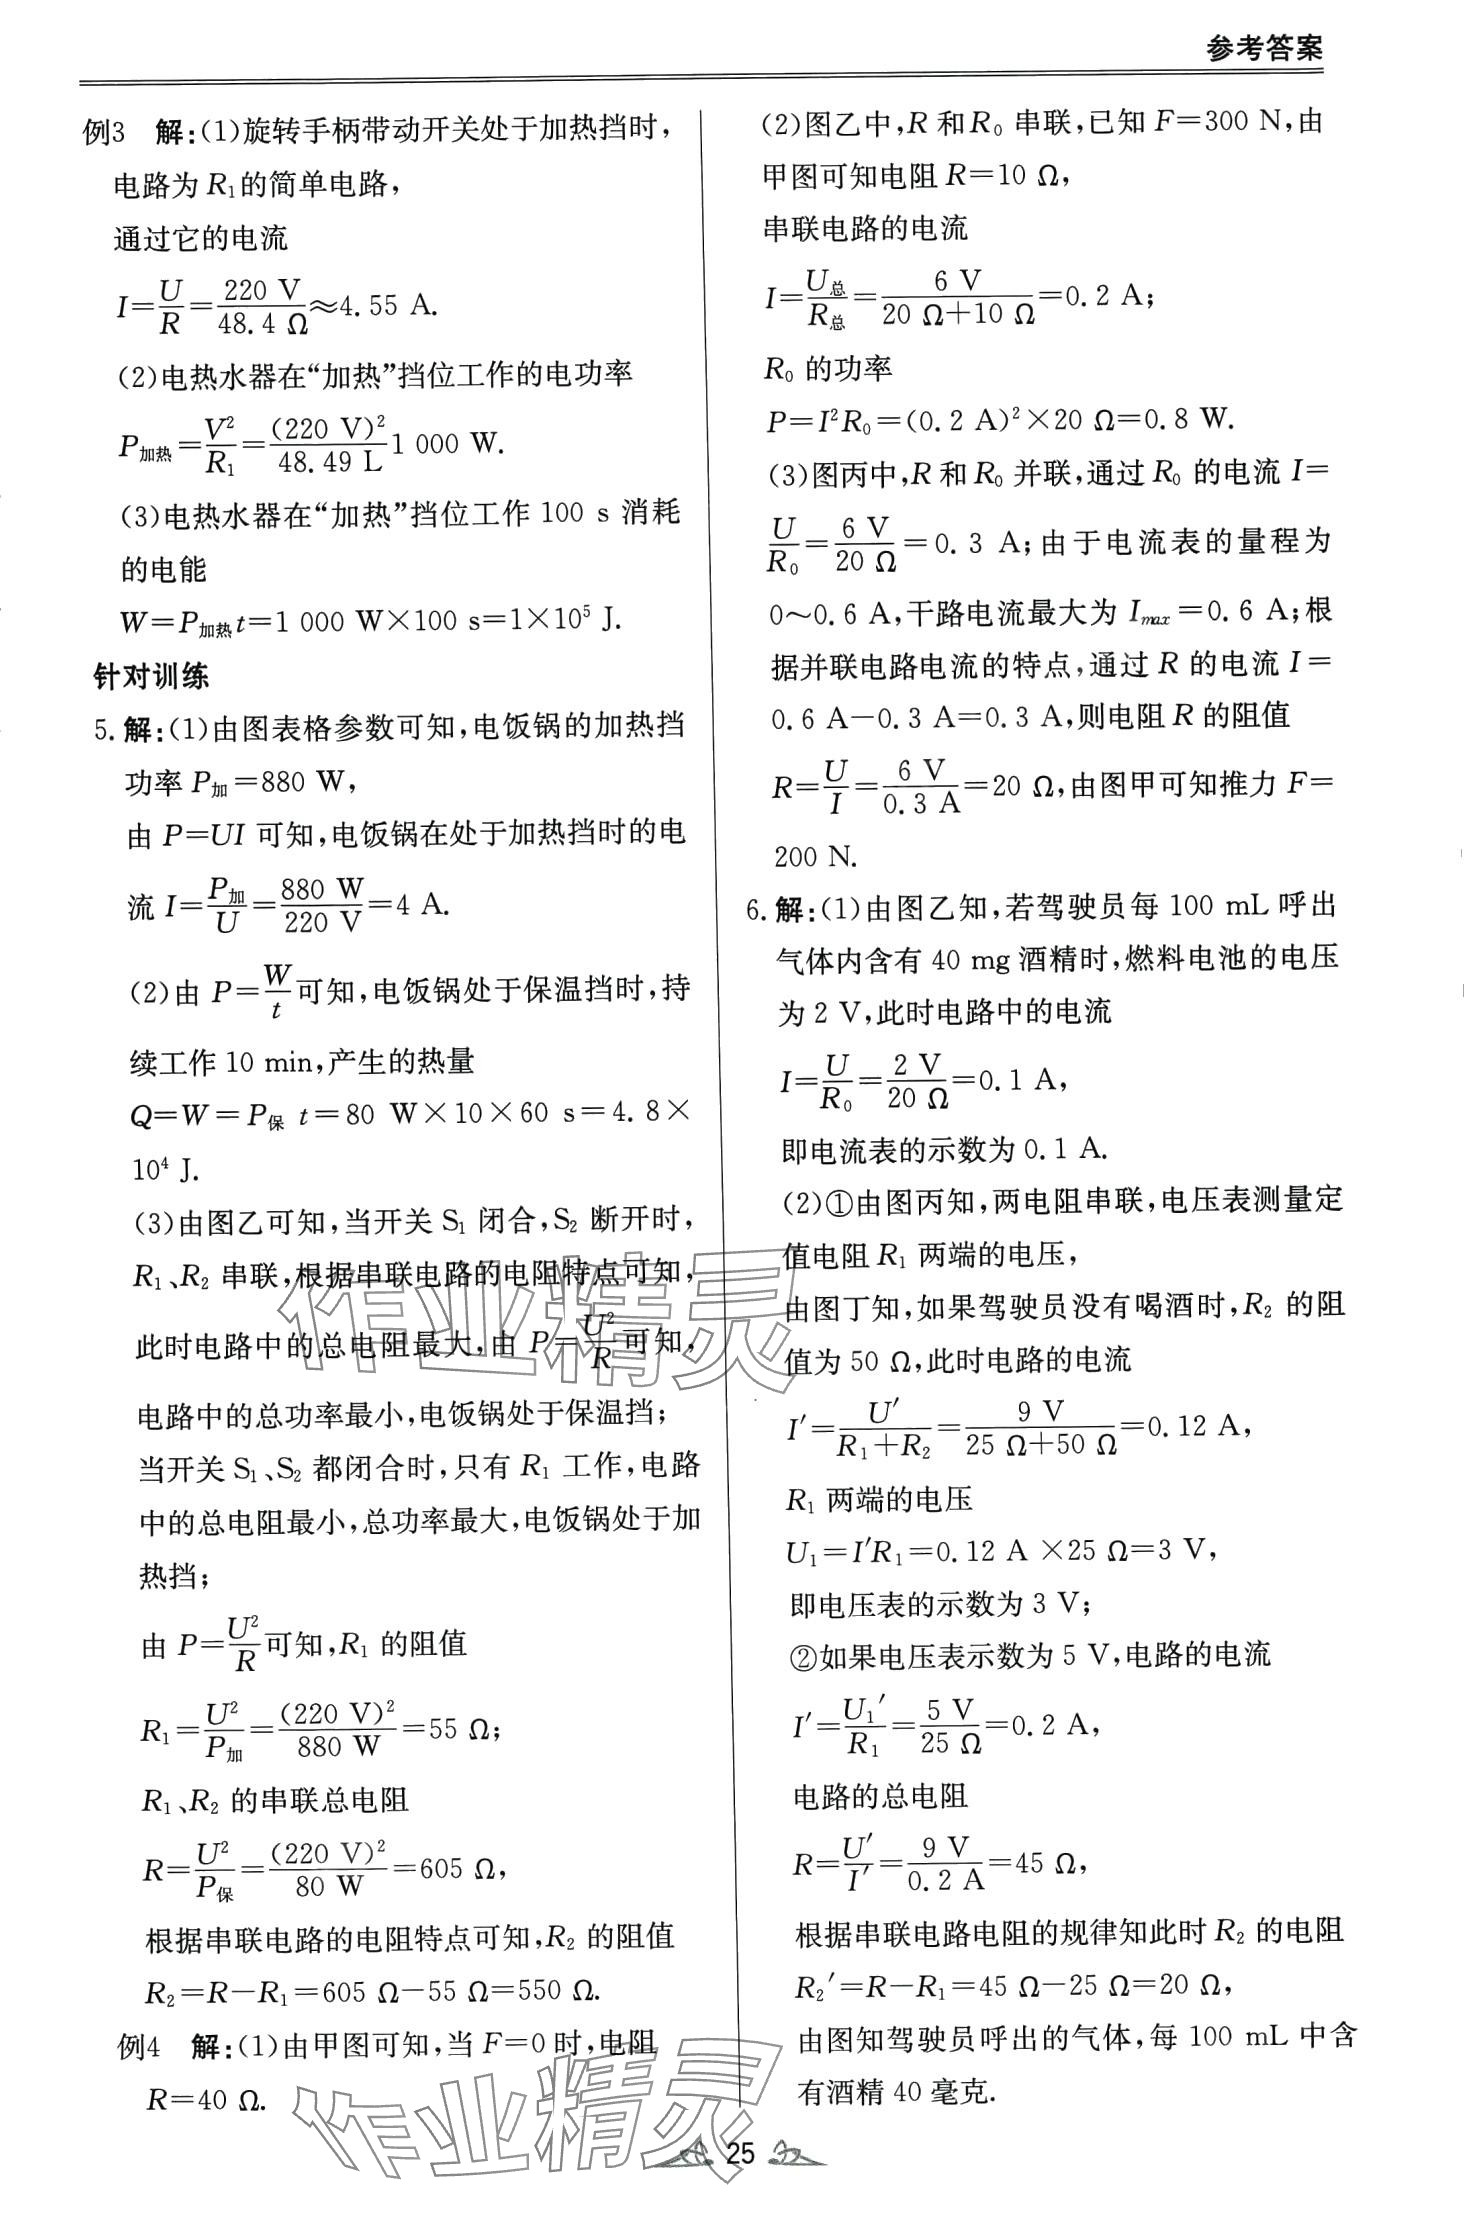 参考答案
例3 解:(1)旋转手柄带动开关处于加热挡时,
电路为 R₁的简单电路,
通过它的电流
I=U/R=220 V/48.4 Ω≈4.55 A.
(2)电热水器在“加热”挡位工作的电功率
P加热=V²/R₁=(220 V)²/48.49 L 1 000 W.
(3)电热水器在“加热”挡位工作 100 s 消耗
的电能
W=P加热t=1 000 W×100 s=1×10⁵ J.
针对训练
5. 解:(1)由图表格参数可知,电饭锅的加热挡
功率 P加=880 W,
由 P=UI 可知,电饭锅在处于加热挡时的电
流 I=P加/U=880 W/220 V=4 A.
(2)由 P=W/t可知,电饭锅处于保温挡时,持
续工作 10 min,产生的热量
Q=W=P保 t=80 W×10×60 s=4.8×
10⁴ J.
(3)由图乙可知,当开关 S₁ 闭合,S₂ 断开时,
R₁、R₂ 串联,根据串联电路的电阻特点可知,
此时电路中的总电阻最大,由 P=U²/R可知,
电路中的总功率最小,电饭锅处于保温挡;
当开关 S₁、S₂ 都闭合时,只有 R₁ 工作,电路
中的总电阻最小,总功率最大,电饭锅处于加
热挡;
由 P=U²/R可知,R₁ 的阻值
R₁=U²/P加=(220 V)²/880 W=55 Ω;
R₁、R₂ 的串联总电阻
R=U²/P保=(220 V)²/80 W=605 Ω,
根据串联电路的电阻特点可知,R₂ 的阻值
R₂=R-R₁=605 Ω-55 Ω=550 Ω.
例4 解:(1)由甲图可知,当 F=0 时,电阻
R=40 Ω.
(2)图乙中,R 和 R₀ 串联,已知 F=300 N,由
甲图可知电阻 R=10 Ω,
串联电路的电流
I=U总/R总=6 V/20 Ω+10 Ω=0.2 A;
R₀ 的功率
P=I²R₀=(0.2 A)²×20 Ω=0.8 W.
(3)图丙中,R 和 R₀ 并联,通过 R₀ 的电流 I=
U/R₀=6 V/20 Ω=0.3 A;由于电流表的量程为
0~0.6 A,干路电流最大为 Imax=0.6 A;根
据并联电路电流的特点,通过 R 的电流 I=
0.6 A-0.3 A=0.3 A,则电阻 R 的阻值
R=U/I=6 V/0.3 A=20 Ω,由图甲可知推力 F=
200 N.
6. 解:(1)由图乙知,若驾驶员每 100 mL 呼出
气体内含有 40 mg 酒精时,燃料电池的电压
为 2 V,此时电路中的电流
I=U/R₀=2 V/20 Ω=0.1 A,
即电流表的示数为 0.1 A.
(2)①由图丙知,两电阻串联,电压表测量定
值电阻 R₁ 两端的电压,
由图丁知,如果驾驶员没有喝酒时,R₂ 的阻
值为 50 Ω,此时电路的电流
I′=U′/R₁+R₂=9 V/25 Ω+50 Ω=0.12 A,
R₁ 两端的电压
U₁=I′R₁=0.12 A ×25 Ω=3 V,
即电压表的示数为 3 V;
②如果电压表示数为 5 V,电路的电流
I′=U₁′/R₁=5 V/25 Ω=0.2 A,
电路的总电阻
R=U′/I′=9 V/0.2 A=45 Ω,
根据串联电路电阻的规律知此时 R₂ 的电阻
R₂′=R-R₁=45 Ω-25 Ω=20 Ω,
由图知驾驶员呼出的气体,每 100 mL 中含
有酒精 40 毫克.
作业精灵
作业精灵
25